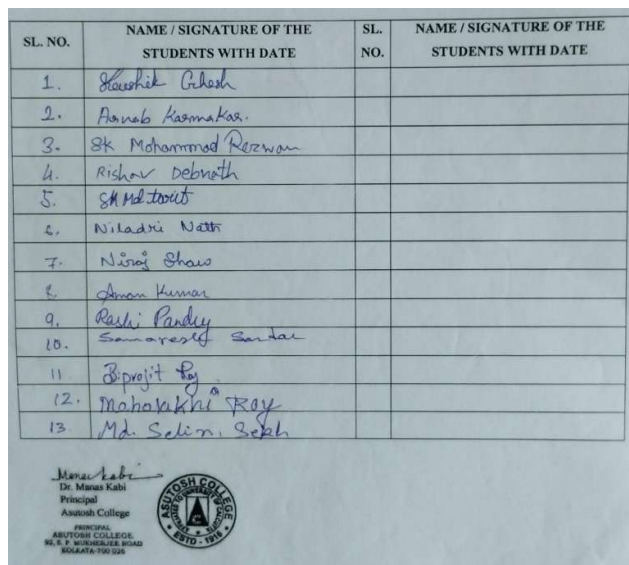 SL. NO. NAME / SIGNATURE OF THE STUDENTS WITH DATE SL. NO. NAME / SIGNATURE OF THE STUDENTS WITH DATE
1. Koushik Ghosh
2. Arnab Karmakar.
3. SK Mohammad Rezwan
4. Rishav Debnath
5. SK Md
6. Niladri Nath
7. Niraj Shaw
8. Aman Kumar
9. Rashi Pandey
10. Sardar
11 Biprojit Roy
12. Roy
13 Md. Selim. Sekh
Manas Kabi
Dr. Manas Kabi
Principal
Asutosh College
PRINCIPAL
ASUTOSH COLLEGE
92, S. P. MUKHERJEE ROAD
KOLKATA-700 026
ASUTOSH COLLEGE
AFFILIATED TO UNIVERSITY OF CALCUTTA
ESTD - 1916